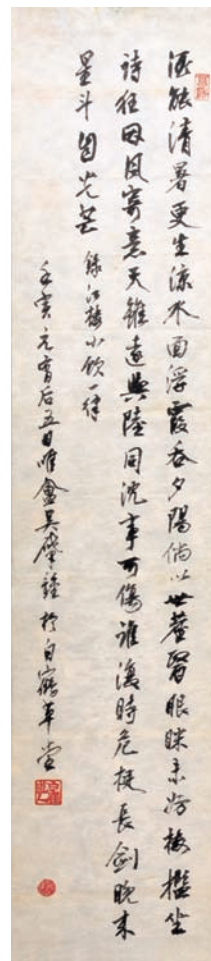 酒能清暑更生凉水面浮霞吞夕陽倘以世塵翳眼眯未妨梅檻坐
詩狂因風寄意天難遠與陸同沈事可傷誰復時危挺長劍晚来
星斗自光芒 録江樓小飲一律
壬寅元宵后五日唯盦吳肇鍾於白鶴草堂